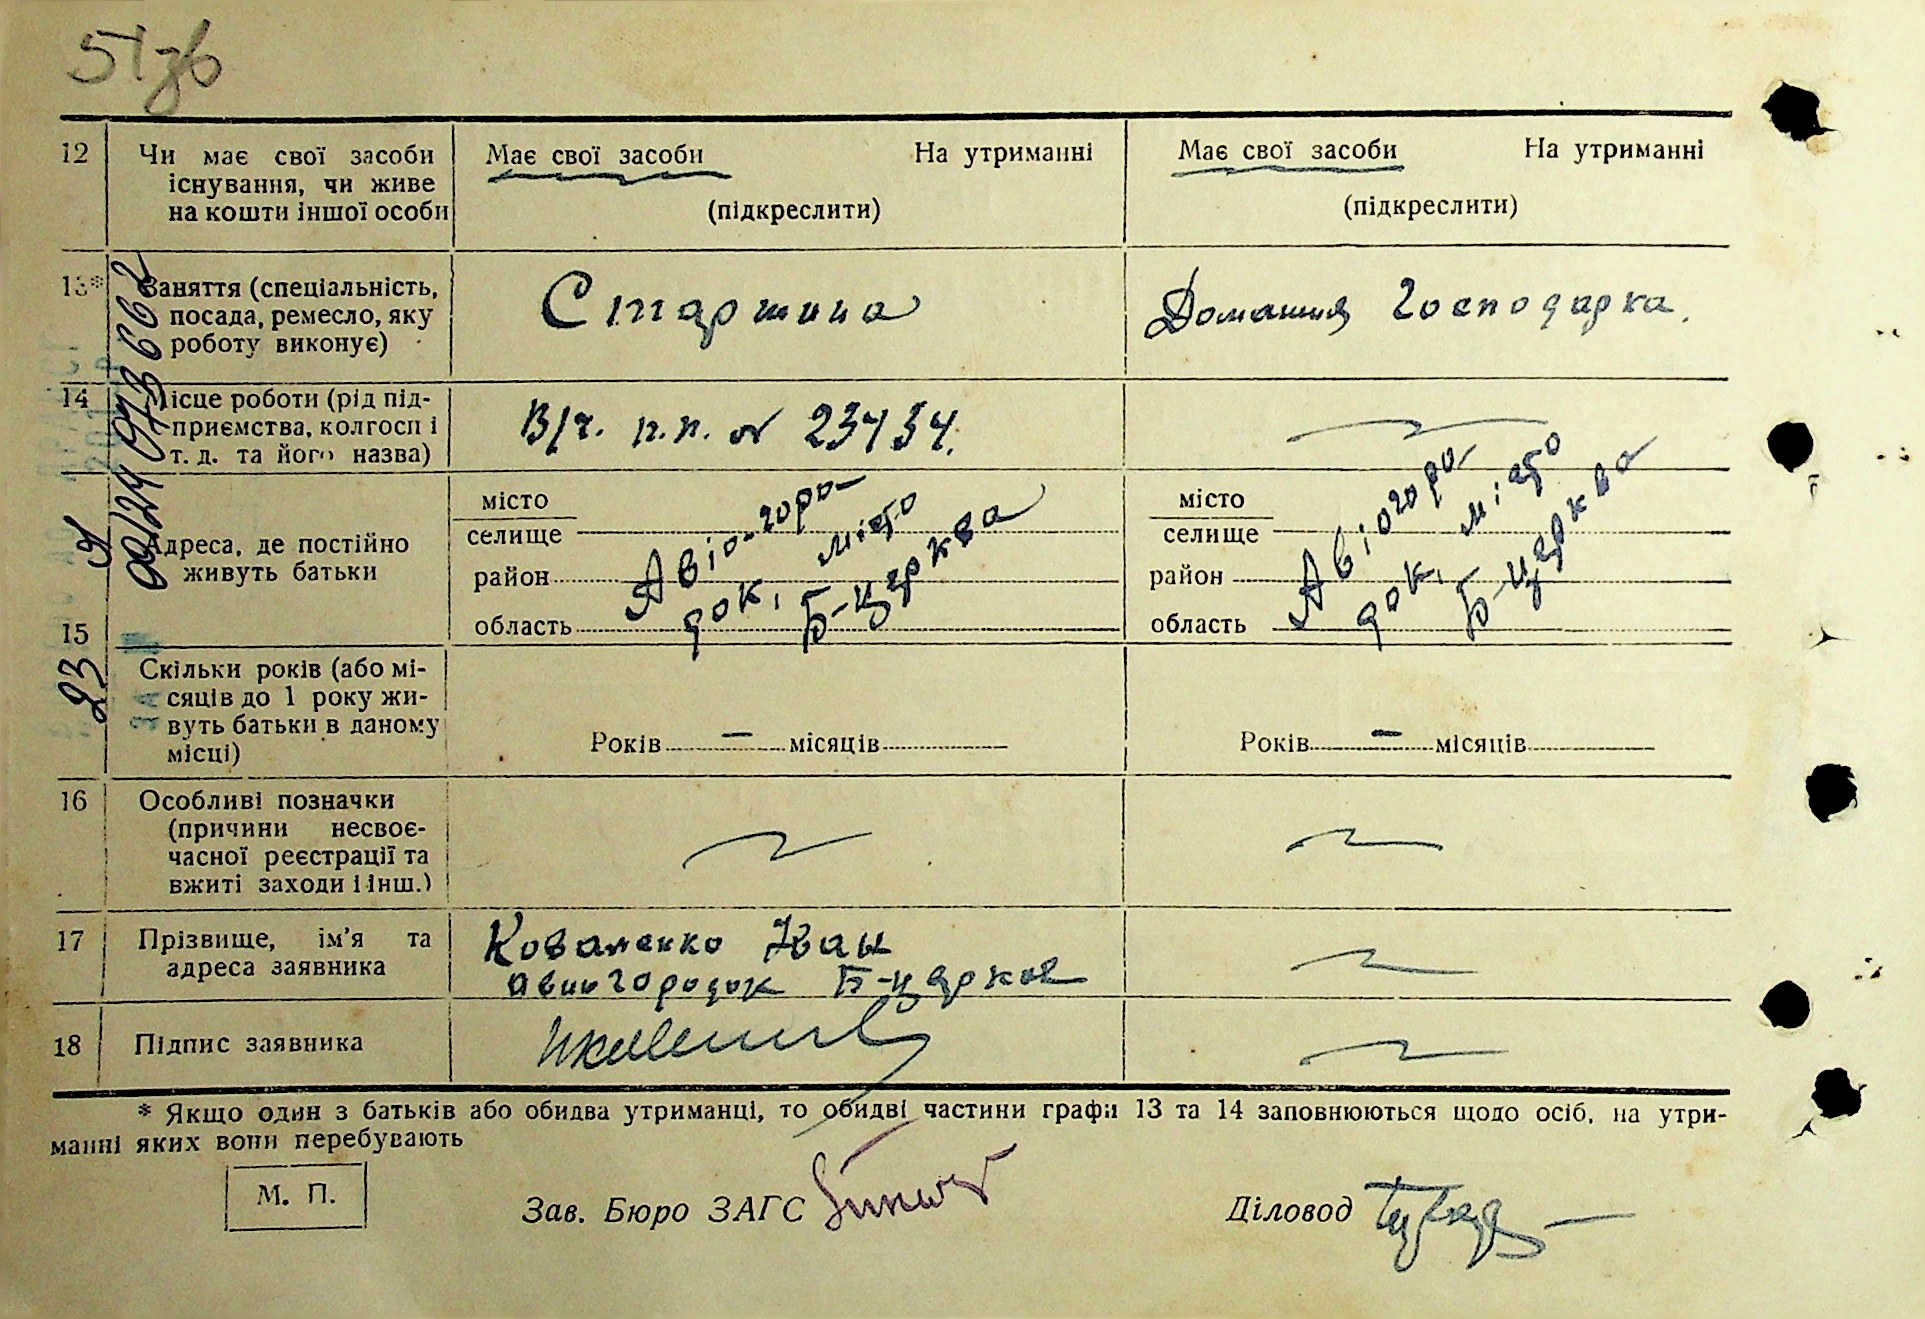 51зв
12 Чи має свої засоби існування, чи живе на кошти іншої особи
Має свої засоби На утриманні
(підкреслити)
Має свої засоби На утриманні
(підкреслити)
13* Заняття (спеціальність, посада, ремесло, яку роботу виконує)
Старшина
Домашня господарка.
14 Місце роботи (рід підприємства, колгосп і т. д. та його назва)
В/ч. п.п. № 23434.
15 Адреса, де постійно живуть батьки
місто
селище
район
область
Авіо-городок, місто Б-церква
місто
селище
район
область
Авіогородок, місто Б-церква
Скільки років (або місяців до 1 року живуть батьки в даному місці)
Років – місяців
Років – місяців
16 Особливі позначки (причини несвоєчасної реєстрації та вжиті заходи і інш.)
17 Прізвище, ім'я та адреса заявника
Коваленко Іван
авиогородок Б-церква
18 Підпис заявника
* Якщо один з батьків або обидва утриманці, то обидві частини графи 13 та 14 заповнюються щодо осіб, на утри-
манні яких вони перебувають
М. П.
Зав. Бюро ЗАГС
Діловод